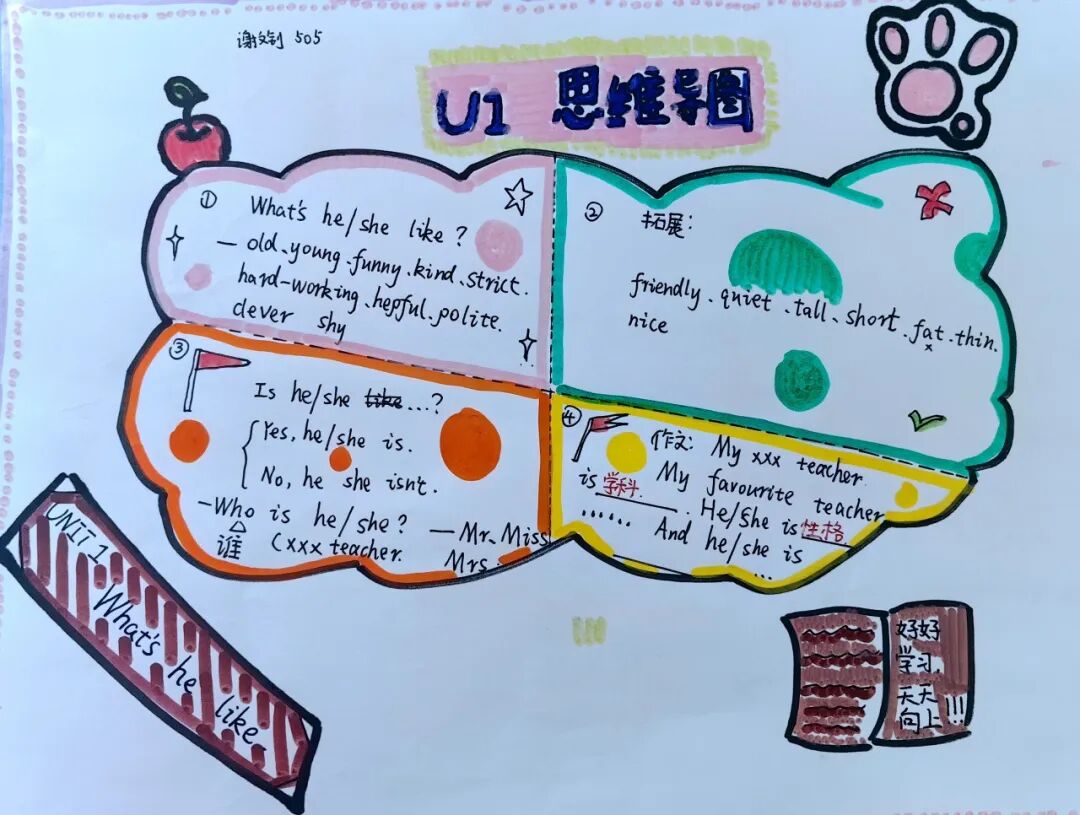 谢文钊 505
U1 思维导图
① What's he/she like?
— old、young、funny、kind、strict.
hard-working、hepful、polite.
clever shy
② 拓展:
friendly、quiet、tall、short、fat、thin.
nice
③
Is he/she like...?
Yes, he/she is.
No, he she isn't.
-Who is he/she? —Mr、Miss
谁 (xxx teacher. Mrs.
④ 作文: My xxx teacher.
My favourite teacher
is 学科. He/She is 性格
...... And he/she is
...
UNIT 1
What's he like.
好好
学习,
天天
向上!!!